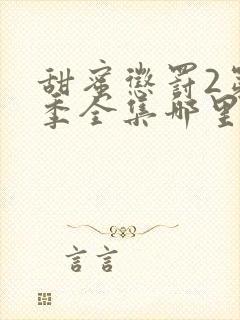 甜蜜懲罰2第
季全集哪里
言言